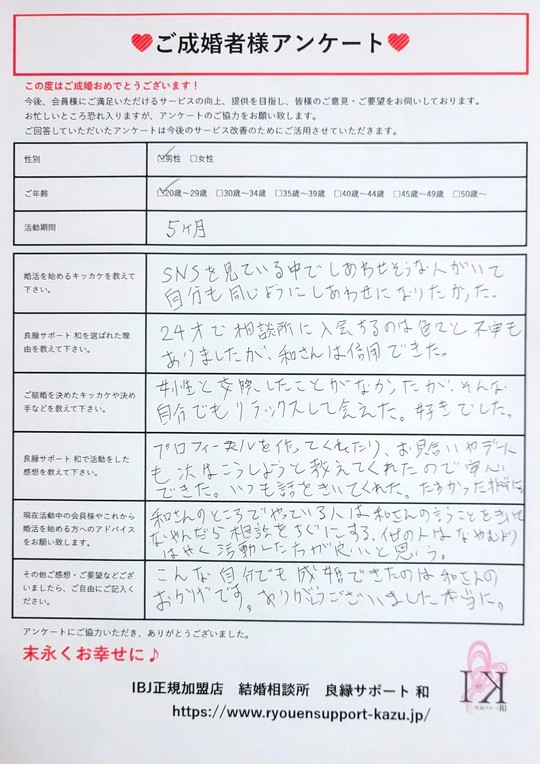 ご成婚者様アンケート
この度はご成婚おめでとうございます！
今後、会員様にご満足いただけるサービスの向上、提供を目指し、皆様のご意見・ご要望をお伺いしております。
お忙しいところ恐れ入りますが、アンケートのご協力をお願い致します。
ご回答していただいたアンケートは今後のサービス改善のためにご活用させていただきます。
性別
☑男性 □女性
ご年齢
☑20歳〜29歳 □30歳〜34歳 □35歳〜39歳 □40歳〜44歳 □45歳〜49歳 □50歳〜
活動期間
5ヶ月
婚活を始めるキッカケを教えて
下さい。
SNSを見ている中でしあわせそうな人がいて
自分も同じようにしあわせになりたかった。
良縁サポート 和を選ばれた理
由を教えて下さい。
24才で相談所に入会するのは色々と不安も
ありましたが、和さんは信用できた。
ご結婚を決めたキッカケや決め
手などを教えて下さい。
女性と交際したことがなかったが、そんな
自分でもリラックスして会えた。好きでした。
良縁サポート 和で活動をした
感想を教えて下さい。
プロフィールを作ってくれたり、お見合いやデート
も次はこうしようと教えてくれたので安心
できた。いつも話をきいてくれた。たすかった
現在活動中の会員様やこれから
婚活を始める方へのアドバイス
をお願い致します。
和さんのところでやっている人は和さんの言うことをきいて
なやんだら相談をすぐにする。他の人はなやむより
はやく活動した方が良いと思う。
その他ご感想・ご要望などござ
いましたら、ご自由にご記入く
ださい。
こんな自分でも成婚できたのは和さんの
おかげです。ありがとうございました本当に。
アンケートにご協力いただき、ありがとうございました。
末永くお幸せに♪
IBJ正規加盟店 結婚相談所 良縁サポート 和
https://www.ryouensupport-kazu.jp/
IK
良縁サポート 和